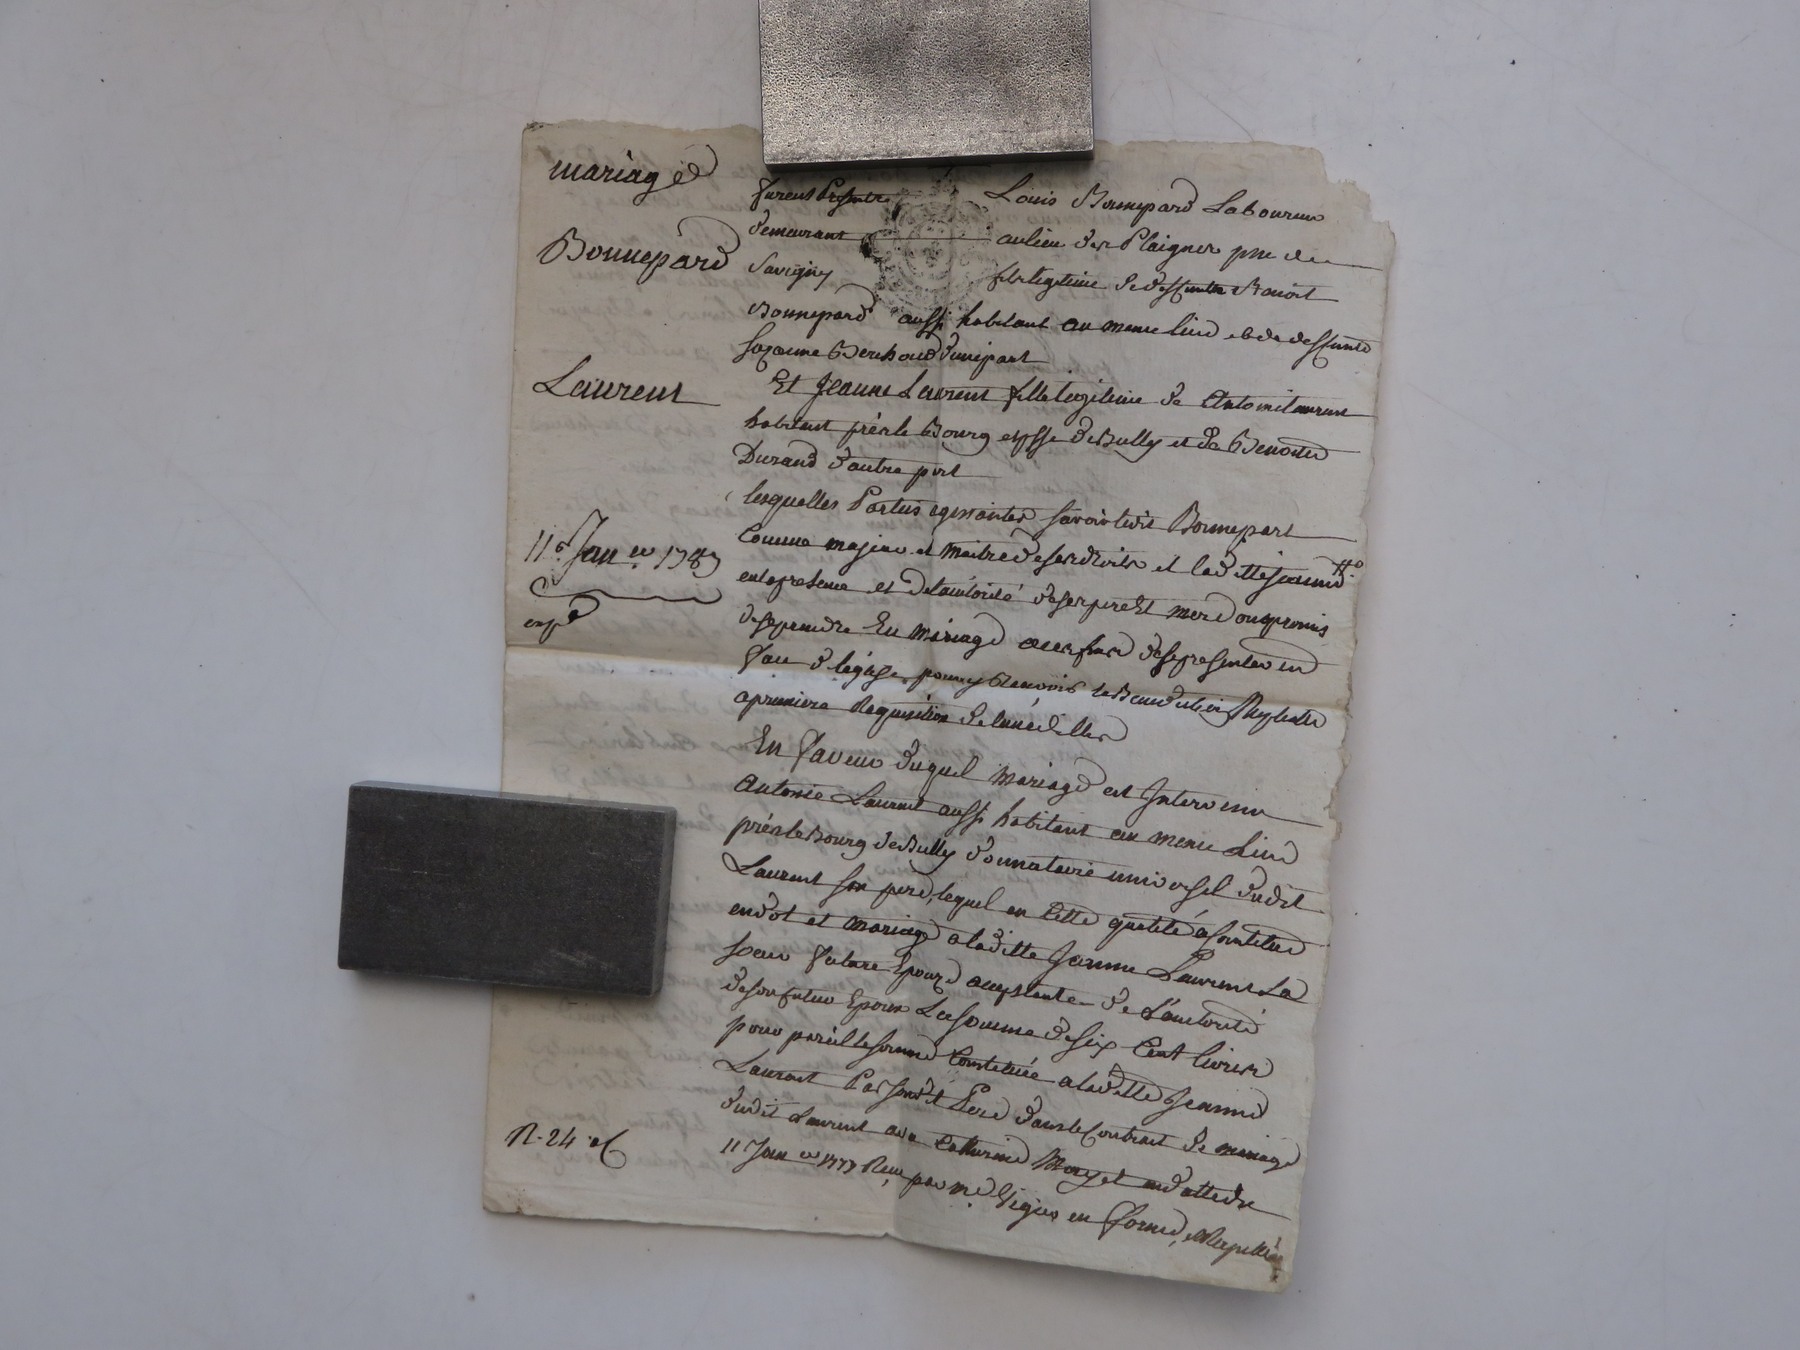 mariage
Bonnepard
Laurent
11e Janer 1789
expé
N. 24
furent presents Louis Bonnepard Laboureur
demeurant au lieu des Plaignes psse de
Savigny fils legitime de deffunts Benoit
Bonnepard aussi habitant au meme lieu et de deffunte
Suzanne Berchoud d'une part
Et Jeanne Laurent fille legitime de Antoine Laurent
habitant près le Bourg et psse de Bully et de Benoite
Durand d'autre part
lesquelles Parties agissantes savoir ledit Bonnepart
Comme majeur et maitre de ses droits et la ditte Jeanne
en la presence et de l'autorité de ses pere Et mere ont promis
de se prendre En mariage de se presenter en
face d'église pour y Recevoir la Benediction Nuptiale
a premiere Requisition de l'un d'elles
En faveur duquel mariage est Intervenu
Antoine Laurent aussi habitant au meme Lieu
près le Bourg de Bully donnataire universel dudit
Laurent son pere, lequel en Cette qualité à Constitué
en dot et mariage a laditte Jeanne Laurent La
soeur future Epouse acceptante de L'autorité
de son futur Epoux La somme de six Cent livres
pour pareille somme Constituée a laditte Jeanne
Laurent Par sondit Pere dans le Contrat de mariage
dudit Laurent avec Catherine
11 Janer 1777 Recu par me Vignes en forme,